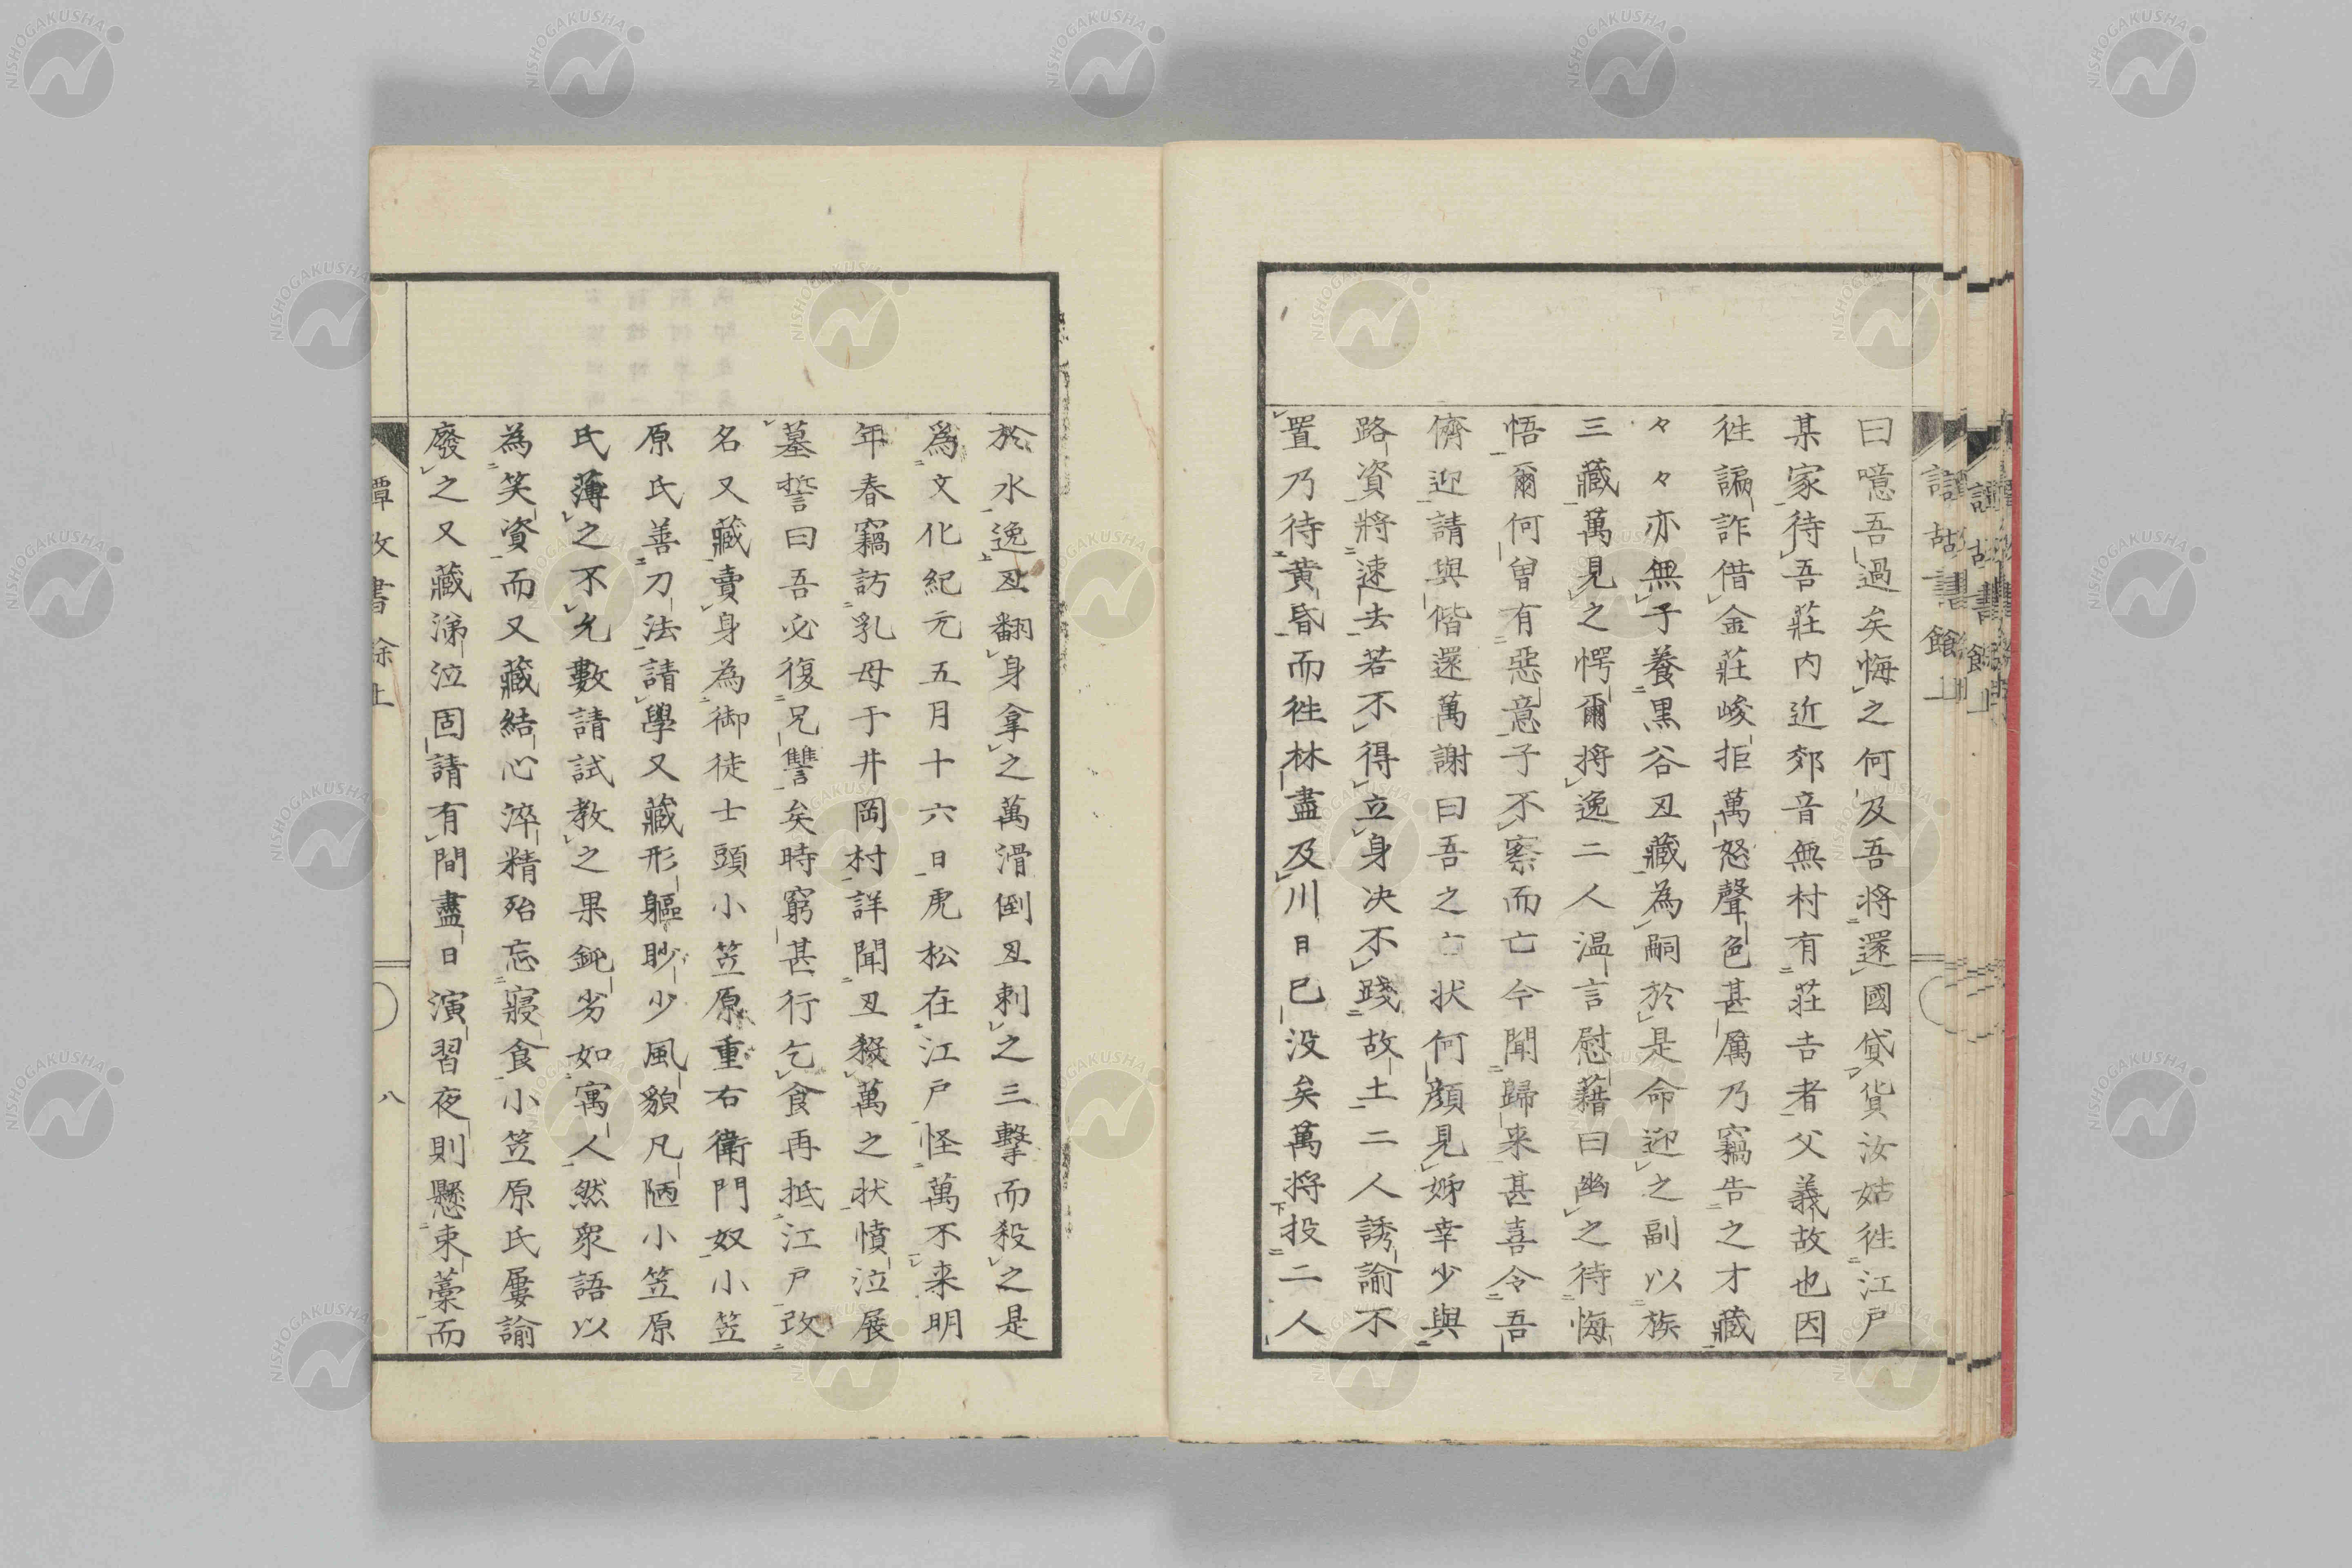 曰噫吾過矣悔之何及吾将還國貸貨汝姑徃江戸
某家待吾莊内近郊音無村有莊吉者父義故也因
徃謫詐借金莊峻拒萬怒聲色甚厲乃竊告之才藏
々々亦無子養黒谷丑藏為嗣於是命迎之副以族
三藏萬見之愕爾将逸二人温言慰藉曰幽之待悔
悟爾何曽有惡意子不察而亡今聞歸来甚喜令吾
儕迎請與偕還萬謝曰吾之亡状何顔見姊幸少與
路資将速去若不得立身决不踐故土二人誘諭不
置乃待黄昏而徃林盡及川日已没矣萬将投二人
於水逸丑翻身拿之萬滑倒丑刺之三擊而殺之是
爲文化紀元五月十六日虎松在江戸怪萬不来明
年春竊訪乳母于井岡村詳聞丑殺萬之状憤泣展
墓誓曰吾必復兄讐矣時窮甚行乞食再抵江戸改
名又藏賣身為御徒士頭小笠原重右衛門奴小笠
原氏善刀法請學又藏形軀眇少風貌凡陋小笠原
氏薄之不允數請試教之果鈍劣如寓人然衆語以
為笑資而又藏結心淬精殆忘寢食小笠原氏屢諭
廢之又藏涕泣固請有間盡日演習夜則懸束藁而
八